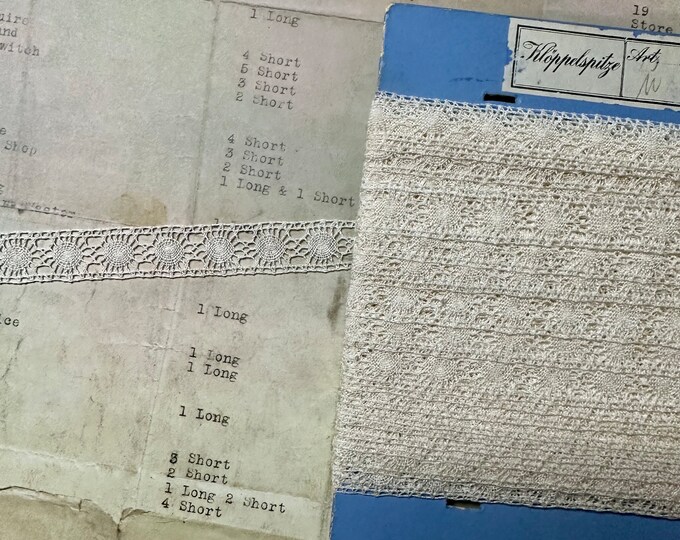 1 Long
19
Store
uire
and
witch
4 Short
5 Short
3 Short
2 Short
Klöppelspitze Art
4 Short
3 Short
2 Short
1 Long & 1 Short
e
Shop
1 Long
ice
1 Long
1 Long
1 Long
3 Short
2 Short
1 Long 2 Short
4 Short